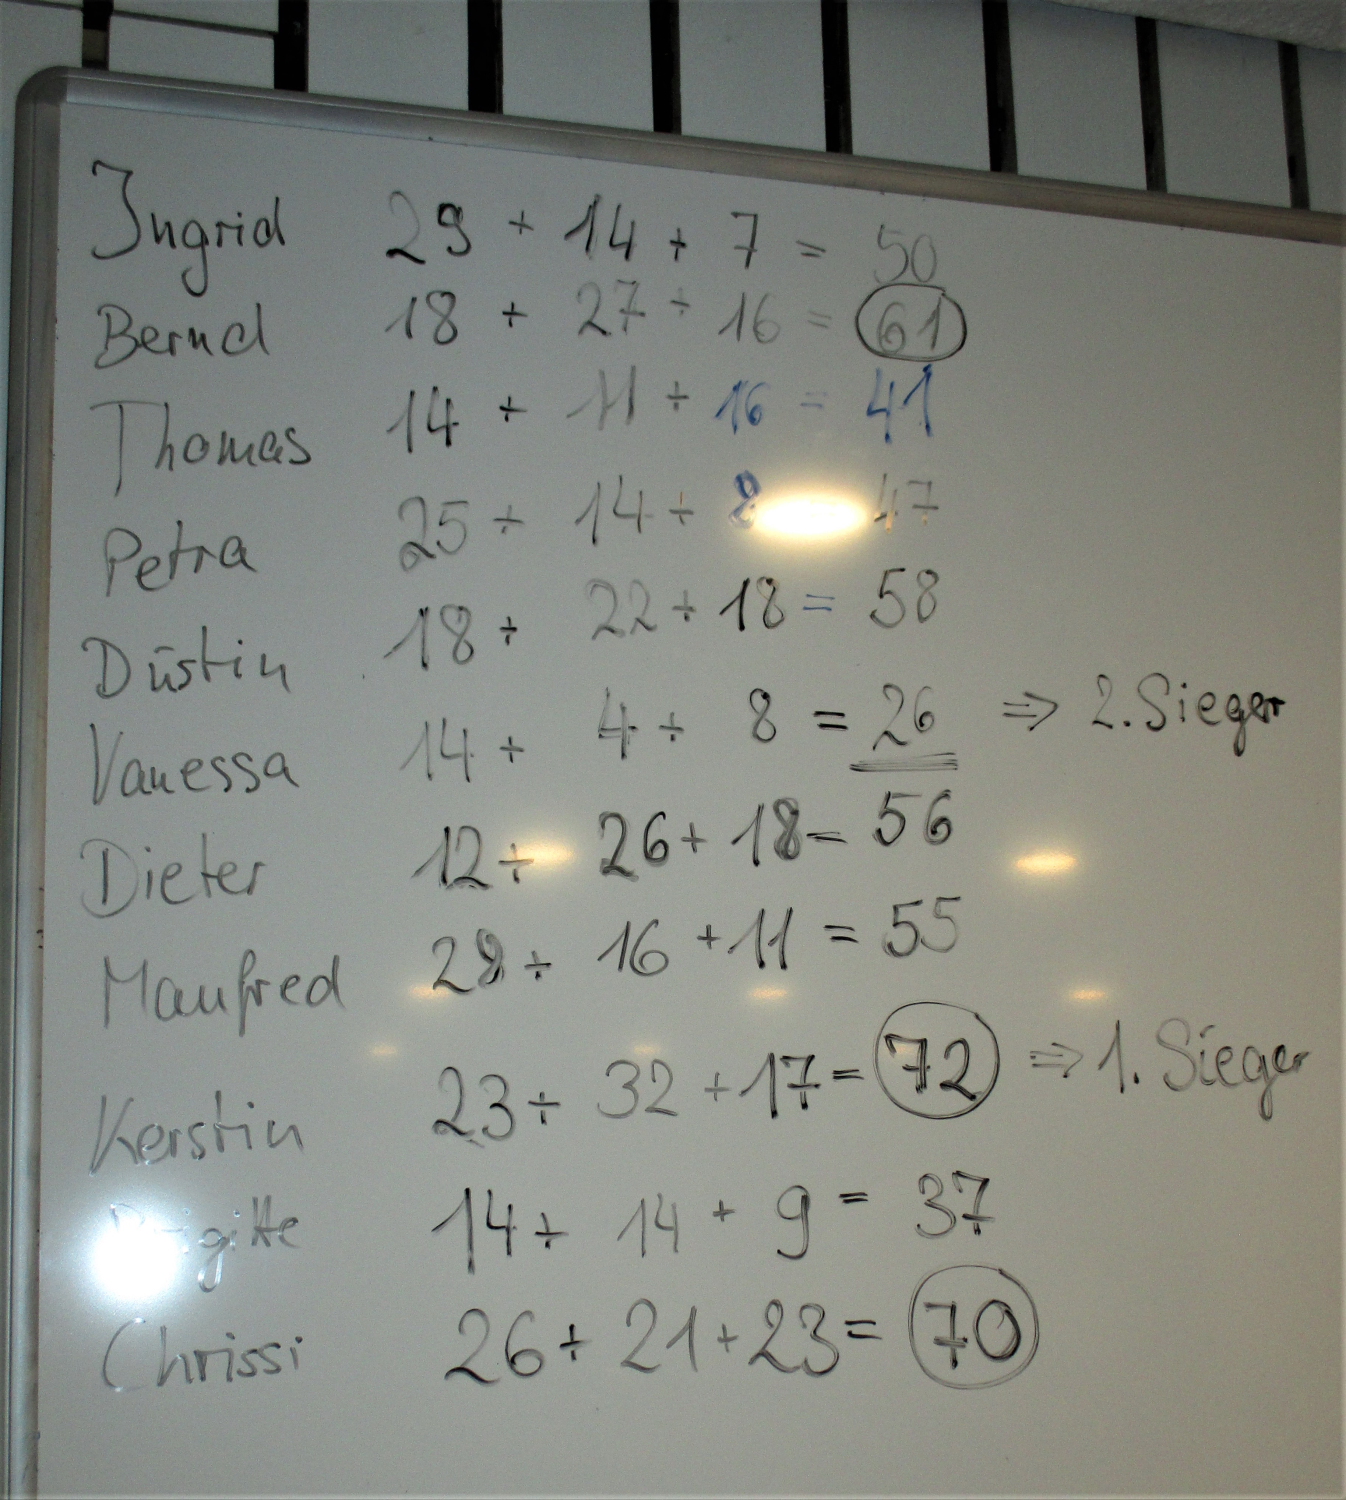 Ingrid 29 + 14 + 7 = 50
Bernd 18 + 27 + 16 = 61
Thomas 14 + 11 + 16 = 41
Petra 25 + 14 + 8 47
Dūstin 18 + 22 + 18 = 58
Vanessa 14 + 4 + 8 = 26 ⇒ 2. Sieger
Dieter 12 + 26 + 18 = 56
Manfred 28 + 16 + 11 = 55
Kerstin 23 + 32 + 17 = 72 ⇒ 1. Sieger
Brigitte 14 + 14 + 9 = 37
Chrissi 26 + 21 + 23 = 70